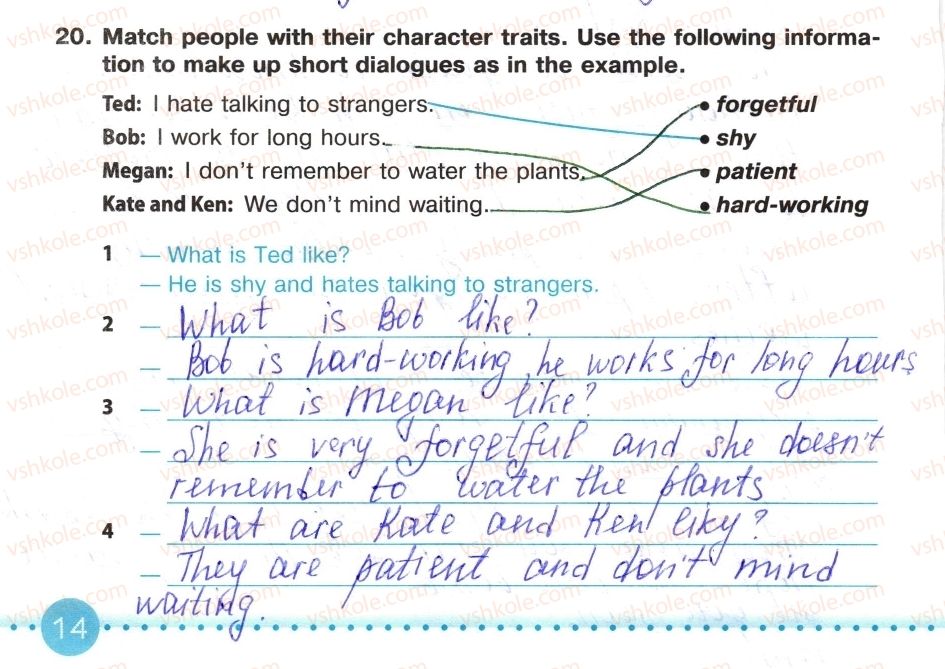 20. Match people with their character traits. Use the following informa-
tion to make up short dialogues as in the example.
Ted: I hate talking to strangers. • forgetful
Bob: I work for long hours. • shy
Megan: I don't remember to water the plants. • patient
Kate and Ken: We don't mind waiting. • hard-working
1 — What is Ted like?
— He is shy and hates talking to strangers.
2 — What is Bob like?
— Bob is hard-working, he works for long hours
3 — What is Megan like?
— She is very forgetful and she doesn't
remember to water the plants
4 — What are Kate and Ken liky?
— They are patient and don't mind
waiting.
14
vshkole.com